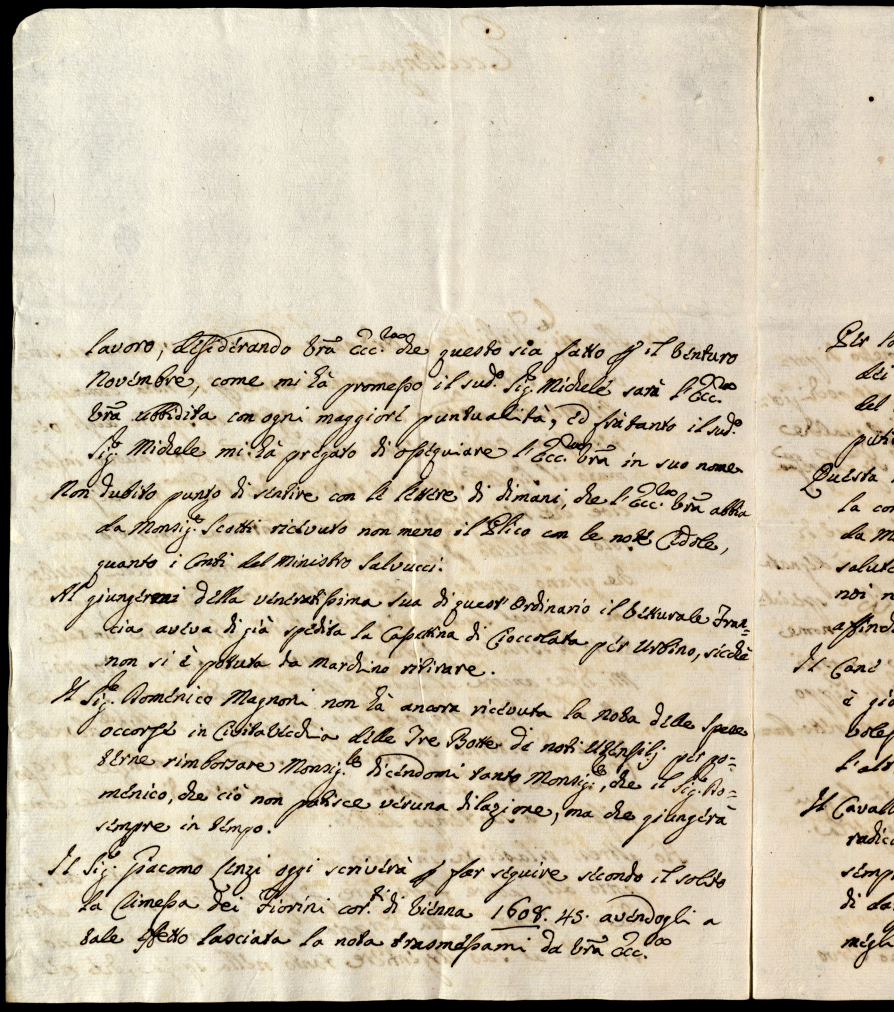 lavoro, desiderando Vra Ecc.za che questo sia fatto p il venturo
Novembre, come mi hà promesso il sud.o Sig.e Michele sarà l'Ecc.za
Vra ubbidita con ogni maggiore puntualità, ed frà tanto il sud.o
Sig.e Michele mi hà pregato di ossequiare l'Ecc.za Vra in suo nome
Non dubito punto di sentire con le lettere di dimani, che l'Ecc.za Vra abbia
da Monsig.e Scotti ricevuto non meno il Plico con le note Cedole,
quanto i Conti del Ministro Salvucci.
Al giungermi della veneratissima sua di quest'Ordinario il Vetturale Fran=
cia aveva di già spedita la Cassettina di Cioccolata per Urbino, sicché
non si è potuta da Marchino ritirare.
Il Sig.e Domenico Magnoni non hà ancora ricevuta la nota delle spese
occorse in Civitavecchia delle Tre Botte de noti Utensilj per po=
terne rimborzare Monsig.e dicendomi tanto Monsig.e, che il Sig.e Do=
menico, che ciò non patisce veruna dilazione, ma che giungerà
sempre in tempo.
Il Sig.e Giacomo Cenzi oggi scriverà p far seguire secondo il solito
la Rimessa dei Fiorini cor.ti di Vienna 1608. 45. avendogli a
tale effetto lasciata la nota trasmessami da Vra Ecc.za
Per
dei
del
Questa
la con
da M
salute
noi n
affinch
Il Cane
è gi
l'alt
Il Cavall
radica
sempr
di da
megli